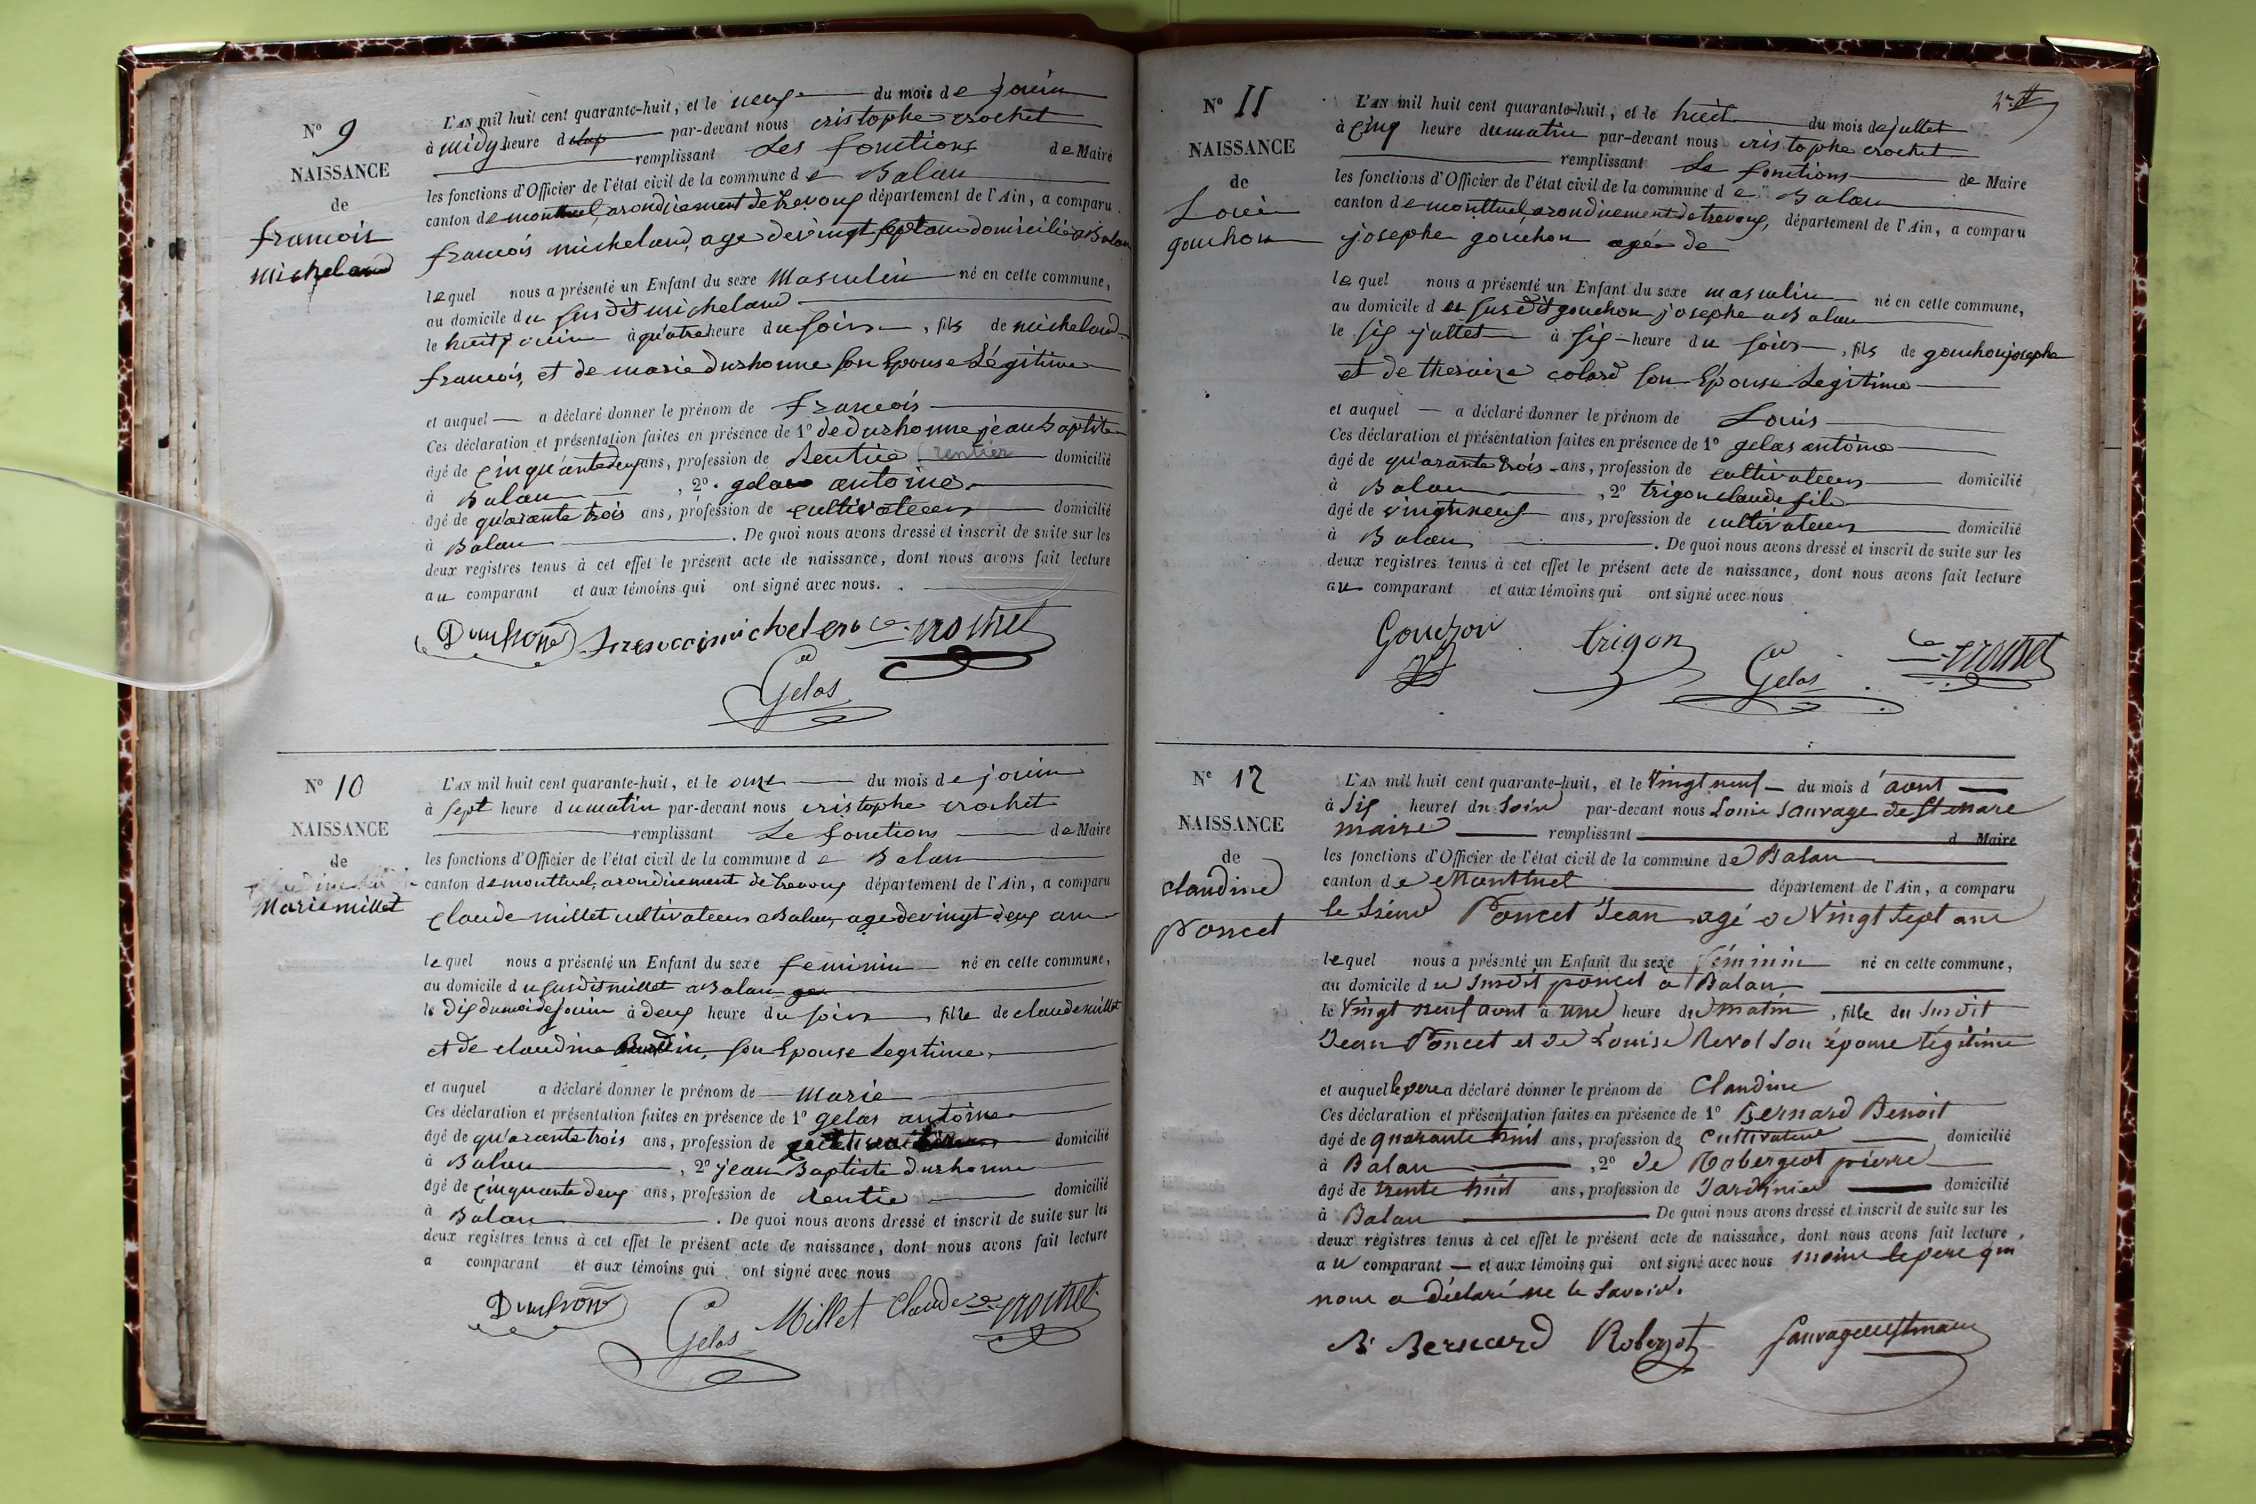 N° 9
NAISSANCE
de
francois
michelaud
L'AN mil huit cent quarante-huit, et le neuf du mois de jouin
à midy heure d par-devant nous cristophe crochet
remplissant Les fonctions de Maire
les fonctions d'Officier de l'état civil de la commune de Balan
canton de montluel, arondicement de trevoux département de l'Ain, a comparu
francois michelaud, age de vingt sept ans domicilié a Balan
lequel nous a présenté un Enfant du sexe Masculin né en cette commune,
au domicile du susdit michelaud
le huit jouin à quatre heure du soir, fils de michelaud
francois, et de marie durhonne son Epouse Légitime
et auquel a déclaré donner le prénom de francois
Ces déclaration et présentation faites en présence de 1° de durhonne jean Baptiste
âgé de cinquante deux ans, profession de Rentié (rentier domicilié
à Balan, 2° gelas antoine
âgé de quarante trois ans, profession de cultivateur domicilié
à Balan. De quoi nous avons dressé et inscrit de suite sur les
deux registres tenus à cet effet le présent acte de naissance, dont nous avons fait lecture
au comparant et aux témoins qui ont signé avec nous.
Durhône francoi michelaud crochet
Gelas
N° 10
NAISSANCE
de
Marie millet
L'AN mil huit cent quarante-huit, et le onze du mois de jouin
à sept heure du matin par-devant nous cristophe crochet
remplissant Le fonctions de Maire
les fonctions d'Officier de l'état civil de la commune de Balan
canton de montluel, arondicement de trevoux département de l'Ain, a comparu
claude millet cultivateur a Balan, age de vingt deux ans
lequel nous a présenté un Enfant du sexe feminin né en cette commune,
au domicile du susdit millet a Balan
le dix du moi de jouin à deux heure du soir, fille de claude millet
et de claudine Burdin, son Epouse Legitime,
et auquel a déclaré donner le prénom de Marie
Ces déclaration et présentation faites en présence de 1° gelas antoine
âgé de quarante trois ans, profession de domicilié
à Balan, 2° jean Baptiste durhonne
âgé de cinquante deux ans, profession de Rentié domicilié
à Balan. De quoi nous avons dressé et inscrit de suite sur les
deux registres tenus à cet effet le présent acte de naissance, dont nous avons fait lecture
a comparant et aux témoins qui ont signé avec nous
Durhône Gelas Millet claude crochet
N° 11
NAISSANCE
de
Loui
gouchon
L'AN mil huit cent quarante-huit, et le huit du mois de jullet
à cinq heure du matin par-devant nous cristophe crochet
remplissant Le fonctions de Maire
les fonctions d'Officier de l'état civil de la commune de Balan
canton de montluel, arondicement de trevoux, département de l'Ain, a comparu
josephe gouchon agée de
lequel nous a présenté un Enfant du sexe masculin né en cette commune,
au domicile du susdit gouchon josephe a Balan
le six jullet à six heure du soir, fils de gouchon josephe
et de theraize colard son Epouse Legitime
et auquel a déclaré donner le prénom de Louis
Ces déclaration et présentation faites en présence de 1° gelas antoine
âgé de quarante trois ans, profession de cultivateur domicilié
à Balan, 2° trigon claude fils
âgé de vingt neuf ans, profession de cultivateur domicilié
à Balan. De quoi nous avons dressé et inscrit de suite sur les
deux registres tenus à cet effet le présent acte de naissance, dont nous avons fait lecture
au comparant et aux témoins qui ont signé avec nous
Gouchon trigon Gelas crochet
N° 12
NAISSANCE
de
claudine
Poncet
L'AN mil huit cent quarante-huit, et le Vingt neuf du mois d'aout
à Six heures du soir par-devant nous Louis Sauvage de St Marc
maire remplissant d Maire
les fonctions d'Officier de l'état civil de la commune de Balan
canton de Montluel département de l'Ain, a comparu
le Siéur Poncet Jean agé de Vingt Sept ans
lequel nous a présenté un Enfant du sexe féminin né en cette commune,
au domicile du susdit poncet à Balan
le Vingt neuf aout à une heure du matin, fille du susdit
Jean Poncet et de Louise Revol son épouse légitime
et auquel le pere a déclaré donner le prénom de Claudine
Ces déclaration et présentation faites en présence de 1° Bernard Benoit
âgé de quarante huit ans, profession de Cultivateur domicilié
à Balan, 2° de Robergeot pierre
âgé de trente huit ans, profession de Jardinier domicilié
à Balan De quoi nous avons dressé et inscrit de suite sur les
deux registres tenus à cet effet le présent acte de naissance, dont nous avons fait lecture,
au comparant et aux témoins qui ont signé avec nous moins le pere qui
nous a déclaré ne le savoir.
B. Bernard Roberjot Sauvage de St marc